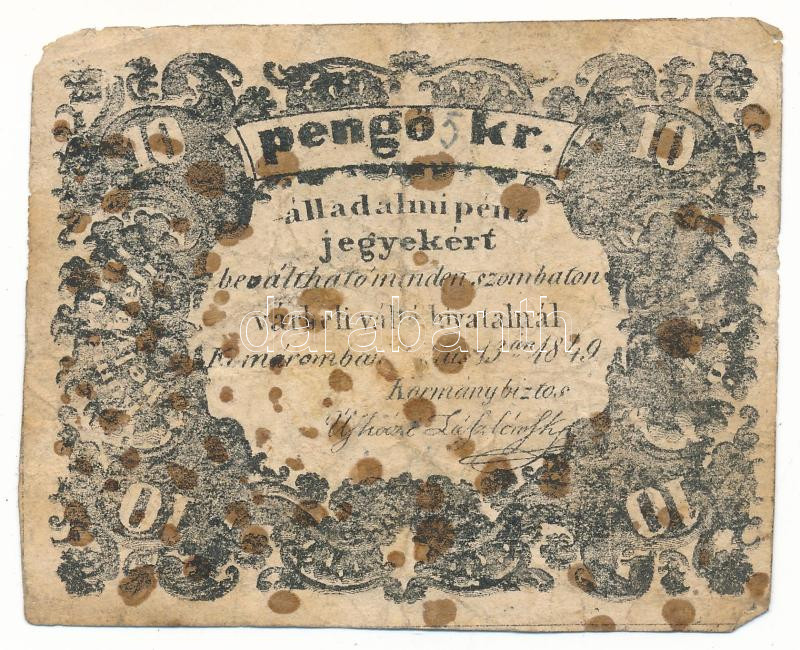 10 10
pengő 5 kr.
álladalmi pénz
jegyekért
beváltható minden szombaton
várbeli váltó hivatalnál
Komáromban 1849
Kormánybiztos
Ujházi László
10 10
darabanth